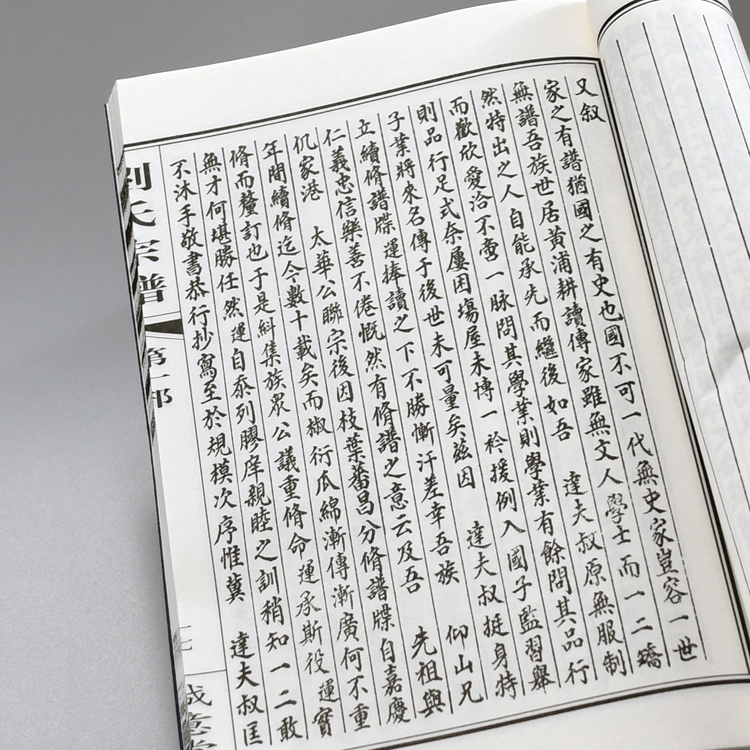 又叙
家之有譜猶國之有史也國不可一代無史家豈容一世
無譜吾族世居黃浦耕讀傳家雖無文人學士而一二矯
然特出之人自能承先而繼後如吾 達夫叔原無服制
而歡欣愛洽不啻一脉問其學業則學業有餘問其品行
則品行足式奈屢困場屋未博一衿援例入國子監習舉
子業將來名傳于後世未可量矣兹因 達夫叔挺身特
立續脩譜牒運捧讀之下不勝慚汗差幸吾族 仰山兄
仁義忠信樂善不倦慨然有脩譜之意云及吾 先祖與
仉家港 太華公聯宗後因枝葉蕃昌分脩譜牒自嘉慶
年間續脩迄今數十載矣而椒衍瓜綿漸傳漸廣何不重
脩而釐訂也于是糾集族眾公議重脩命運承斯役運實
無才何堪勝任然運自忝列膠庠親睦之訓稍知一二敢
不沐手敬書恭行抄寫至於規模次序惟冀 達夫叔匡
劉氏宗譜
第一部